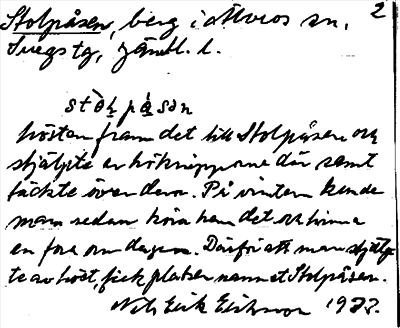 Stolpåsen, berg i Ottvros sn. 2
Svegs tg, Jämtl. l.
stòlpåsən
hösten fram det till Stolpåsen och
stjälpte av hökripporna där samt
täckte över dem. På vintern kunde
man sedan köra hem det och hinna
en fora om dagen. Därför att man stjälp-
te av höet, fick platsen namnet Stolpåsen.
Nils Erik Eriksson 1933.